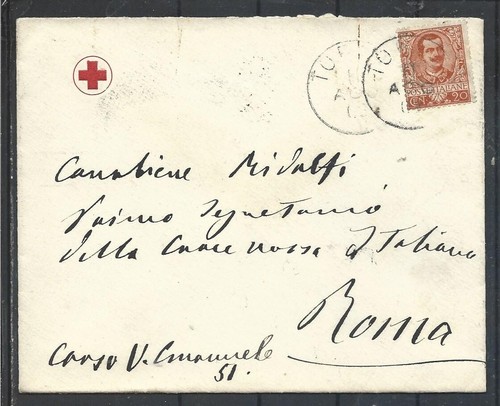 POSTE ITALIANE
CENT. 20
TO
TO
Ridolfi
Primo Segretario
della Croce rossa Italiana
Roma
Corso V. Emanuele
51.